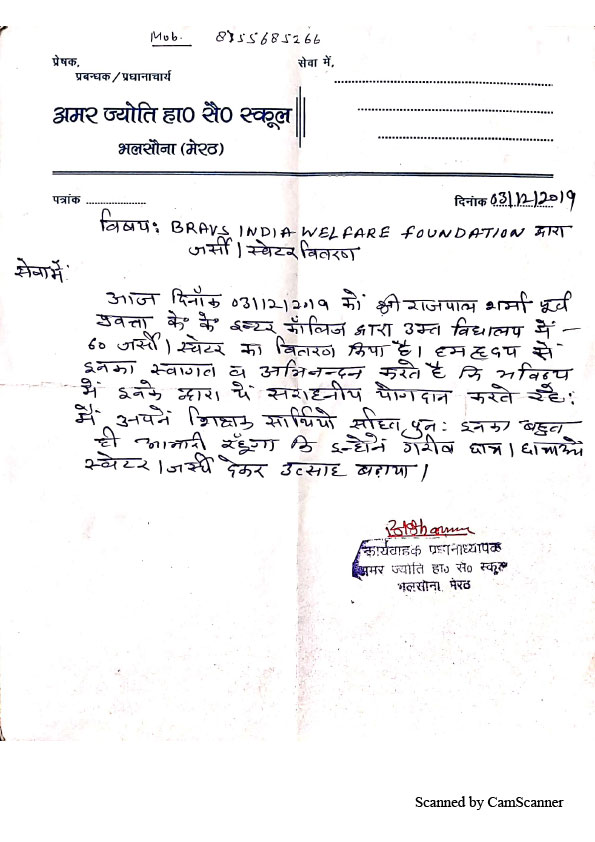 Mob. 8755685266
प्रेषक,
सेवा में,
प्रबन्धक/प्रधानाचार्य
अमर ज्योति हा० सै० स्कूल
भलसौना (मेरठ)
पत्रांक
दिनांक 03/12/2019
विषय: BRAVS INDIA WELFARE FOUNDATION द्वारा
जर्सी/स्वेटर वितरण
सेवामें
आज दिनाँक 03/12/2019 को श्री राजपाल शर्मा पूर्व
प्रवक्ता के० के० इन्टर कॉलिज द्वारा उक्त विद्यालय में -
60 जर्सी/स्वेटर का वितरण किया है। हम हृदय से
इनका स्वागत व अभिनन्दन करते है कि भविष्य
में इनके द्वारा ये सराहनीय योगदान करते रहे:
मैं अपने शिक्षक साथियो सहित पुन: इनका बहुत
ही आभारी रहूँगा कि इन्होने गरीब छात्र/छात्राओं
स्वेटर/जर्सी देकर उत्साह बढ़ाया।
कार्यवाहक प्रधानाध्यापक
अमर ज्योति हा० सै० स्कूल
भलसौना मेरठ
Scanned by CamScanner